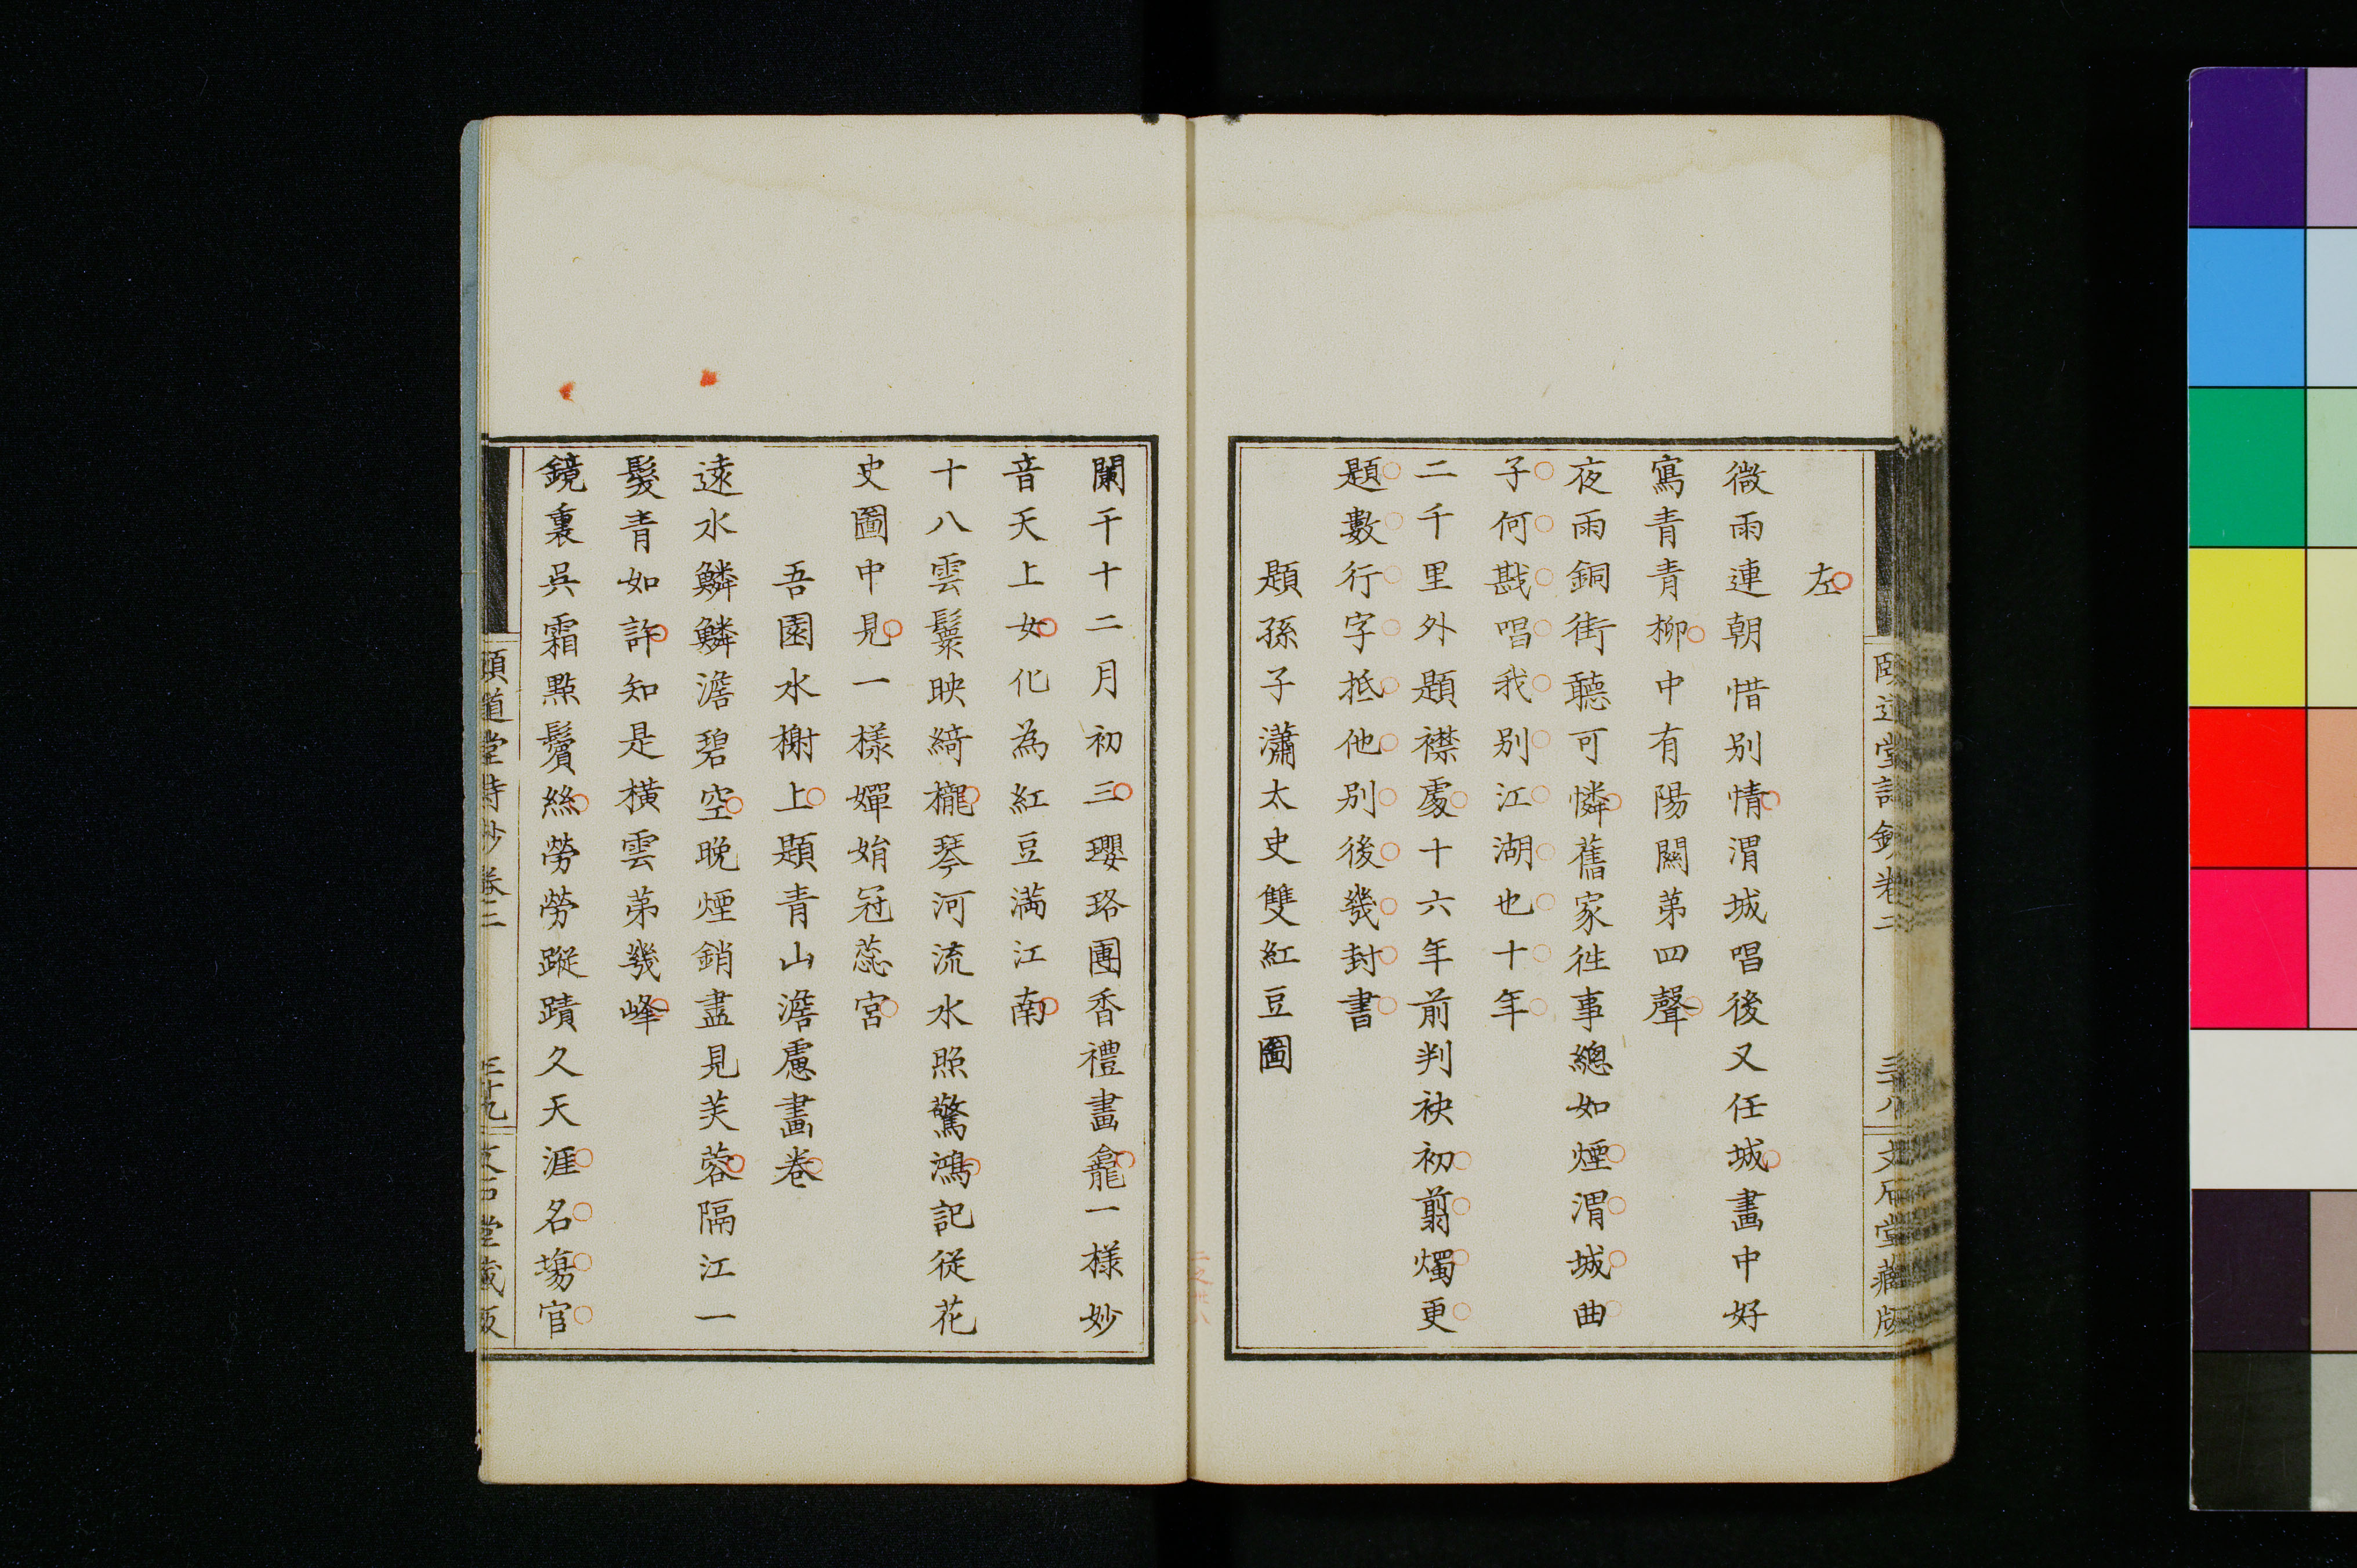 左
微雨連朝惜別情渭城唱後又任城畫中好
寫青青柳中有陽關第四聲
夜雨銅街聽可憐舊家往事總如煙渭城曲
子何戡唱我別江湖也十年
二千里外題襟處十六年前判袂初翦燭更
題數行字抵他別後幾封書
題孫子瀟太史雙紅豆圖
頤道堂詩鈔卷二
三十八
文石堂藏版
闌干十二月初三瓔珞團香禮畫龕一樣妙
音天上女化為紅豆滿江南
十八雲鬟映綺櫳琴河流水照驚鴻記從花
史圖中見一樣嬋娟冠蕊宮
吾園水榭上題青山澹慮畫卷
遠水鱗鱗澹碧空晚煙銷盡見芙蓉隔江一
髮青如許知是橫雲第幾峰
鏡裏吳霜點鬢絲勞勞蹤蹟久天涯名塲官
頤道堂詩鈔卷二
三十九
文石堂藏版